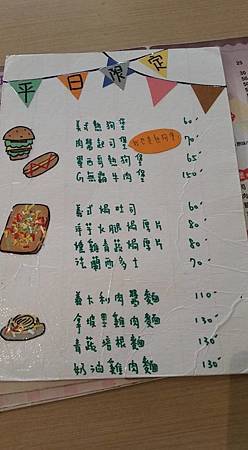 平日限定
美式熱狗堡 60
肉醬起司堡 70
墨西哥熱狗堡 65
G無霸牛肉堡 150
美式焗吐司 60
洋芋火腿焗厚片 80
燻雞青蔬焗厚片 80
法蘭西多士 70
義大利肉醬麵 110
拿坡里雞肉麵 130
青蔬培根麵 130
奶油雞肉麵 130